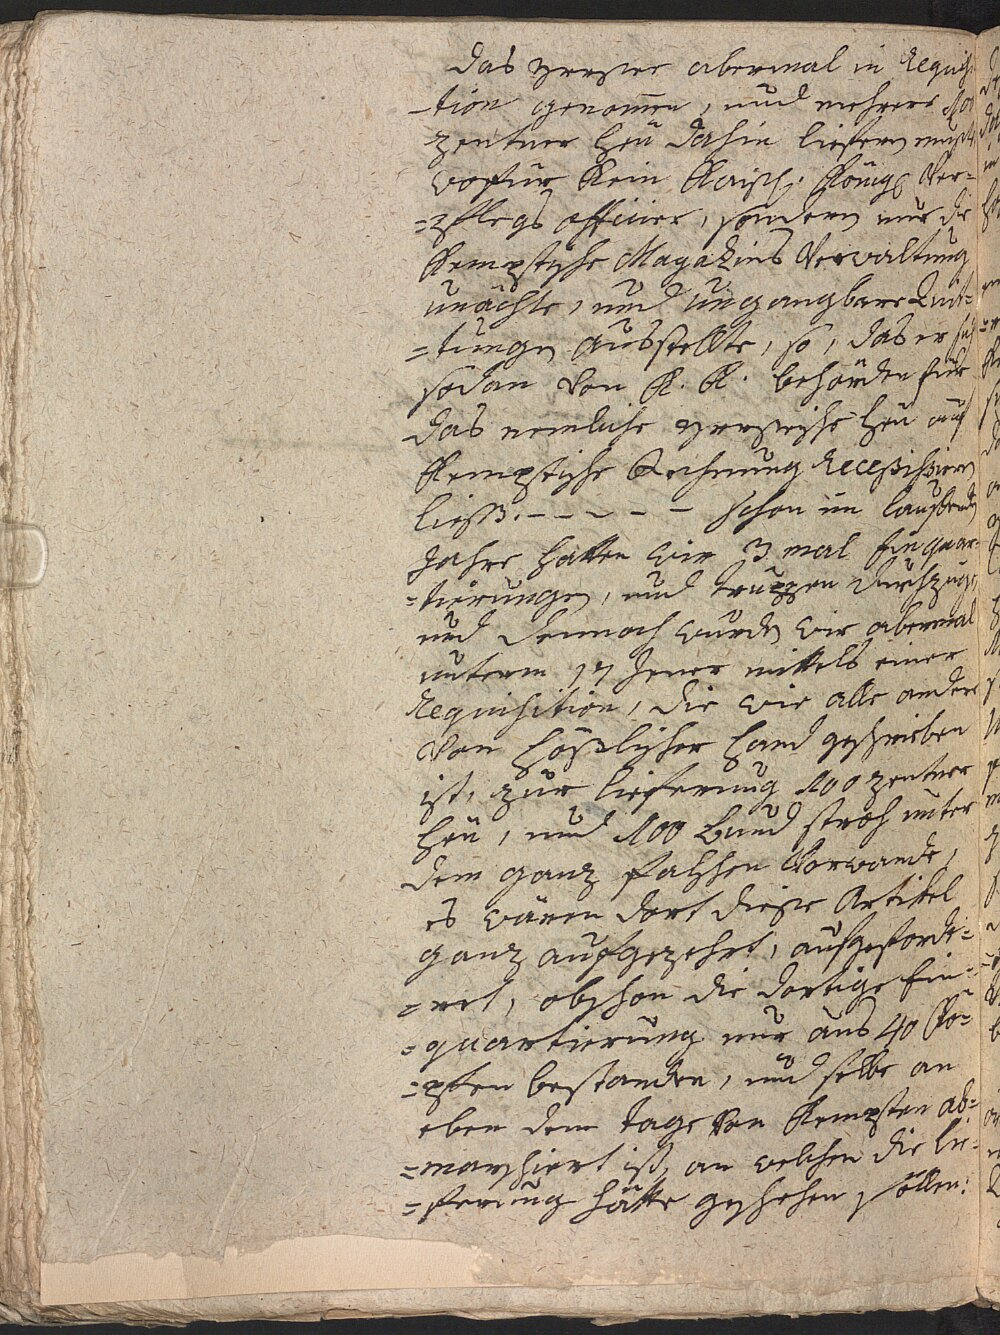 das unsere abermal in Requisi-
-tion genomen, und mehrere 100
zentner Heu dahin liefern muste
wofür kein Kaisl: Königl Ver-
=pflegs officier, sondern nur die
Kemptische Magazins Verwaltung
unächte, und ungangbare Quit-
=tungen ausstellte, so, das er sich
sodan von K. K. behörden für
das nemliche unserische Heu auf
Kemptische Rechnung Recepissiern
ließ. – – – – – schon im laufenden
Jahre hatten wir 3 mal Einquar-
=tierungen, und truppen durchzüge,
und dennoch wurden wir abermal
unterm 17 Jener mittels einer
Requisition, die wie alle andere
von Hößlischer Hand geschrieben
ist, zur lieferung 100 zentner
Heu, und 100 Bund stroh unter
dem ganz falschen Vorwande,
es wären dort diese Artikel
ganz aufgezehrt, aufgeforde-
=ret, obschon die dortige Ein-
=quartierung nur aus 40 Kö-
=pfen bestanden, und selbe an
eben dem tage von Kempten ab-
=marschiert ist, an welchen die lie-
=ferung hätte geschehen sollen: